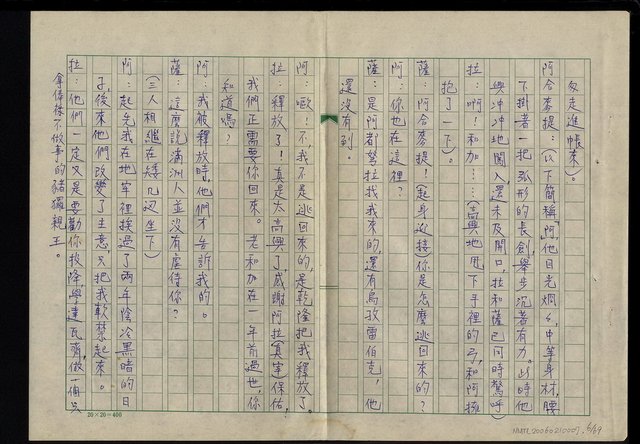 匆走進帳來)。
阿合麥提：(以下簡稱「阿」他目光炯々，中等身材，腰
下掛着一把弧形的長劍舉步沉著有力。此時他
興沖沖地闖入，還未及開口，拉和薩已同時驚呼)
拉：啊！和加……(高興地甩下手裡的弓，和阿擁
抱了一下)。
薩：阿合麥提！(起身迎接)你是怎麼逃回來的？
阿：你也在這裡？
薩：是阿都拉找我來的，還有烏孜雷伯克，他
還沒有到。
阿：歐！不，我不是逃回來的，是乾隆把我釋放了。
拉：釋放了！真是太高興了，感謝阿拉(真宰)保佑，
我們正需要你回來。老和加在一年前過世，你
知道嗎？
阿：我被釋放時，他們才告訴我的。
薩：這麼說滿洲人並沒有虐待你？
(三人相繼在矮几边坐下)
阿：起先我在地牢裡挨過了兩年陰冷黑暗的日
子，後來他們改變了主意，只把我軟禁起來。
拉：他們一定又是要勸你投降，學達瓦齊，做一個只
拿俸祿不做事的豬玀親王。
20×20=400
NMTL20060210007, 6/69